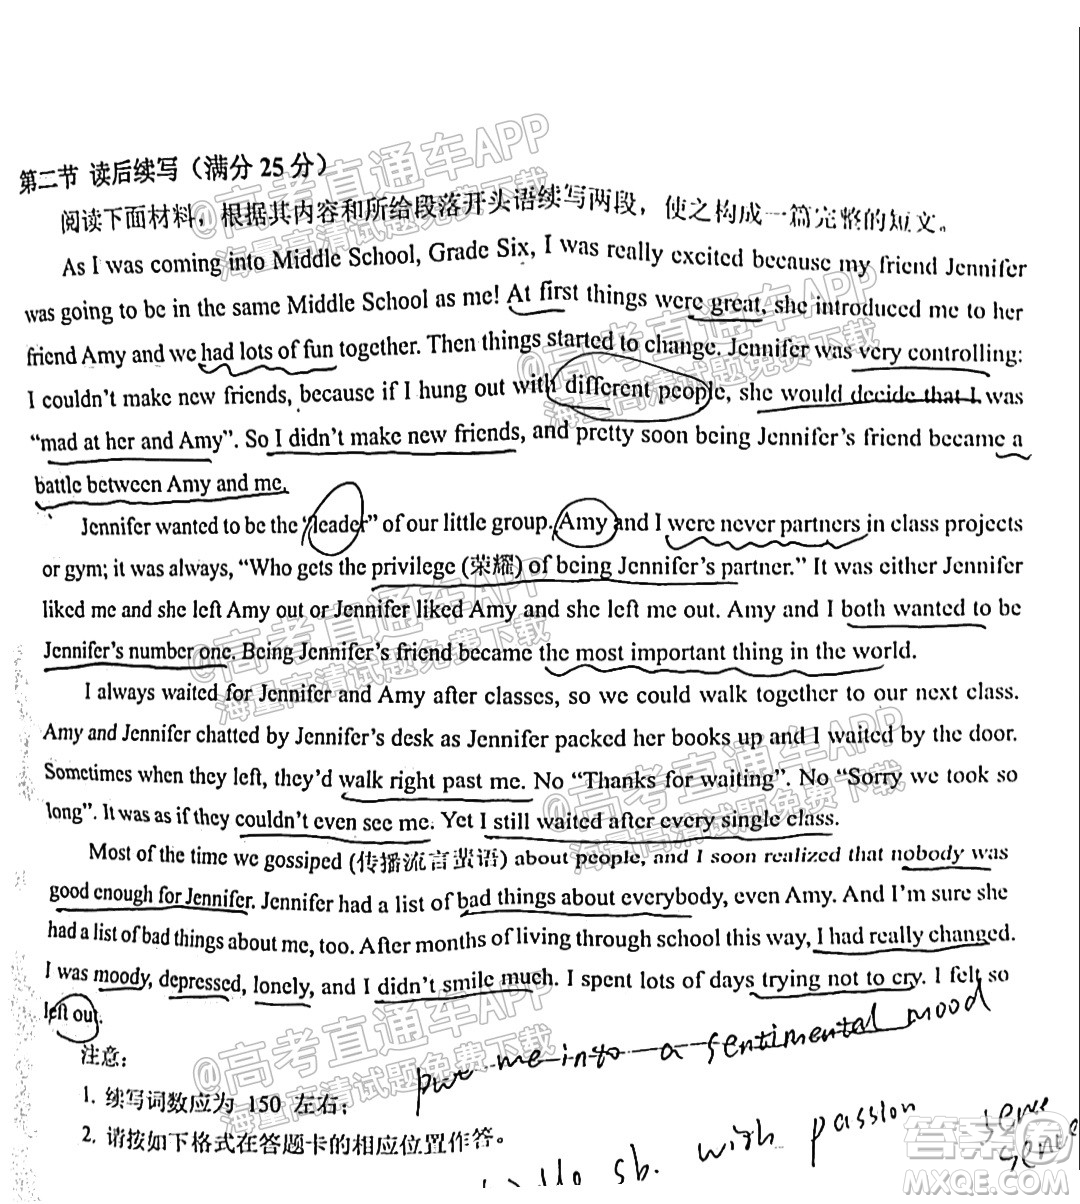 第二节 读后续写（满分 25 分）
阅读下面材料，根据其内容和所给段落开头语续写两段，使之构成一篇完整的短文。
As I was coming into Middle School, Grade Six, I was really excited because my friend Jennifer
was going to be in the same Middle School as me! At first things were great, she introduced me to her
friend Amy and we had lots of fun together. Then things started to change. Jennifer was very controlling:
I couldn't make new friends, because if I hung out with different people, she would decide that I was
“mad at her and Amy”. So I didn't make new friends, and pretty soon being Jennifer's friend became a
battle between Amy and me.
Jennifer wanted to be the “leader” of our little group. Amy and I were never partners in class projects
or gym; it was always, “Who gets the privilege (荣耀) of being Jennifer's partner.” It was either Jennifer
liked me and she left Amy out or Jennifer liked Amy and she left me out. Amy and I both wanted to be
Jennifer's number one. Being Jennifer's friend became the most important thing in the world.
I always waited for Jennifer and Amy after classes, so we could walk together to our next class.
Amy and Jennifer chatted by Jennifer's desk as Jennifer packed her books up and I waited by the door.
Sometimes when they left, they'd walk right past me. No “Thanks for waiting”. No “Sorry we took so
long”. It was as if they couldn't even see me. Yet I still waited after every single class.
Most of the time we gossiped (传播流言蜚语) about people, and I soon realized that nobody was
good enough for Jennifer. Jennifer had a list of bad things about everybody, even Amy. And I'm sure she
had a list of bad things about me, too. After months of living through school this way, I had really changed.
I was moody, depressed, lonely, and I didn't smile much. I spent lots of days trying not to cry. I felt so
left out.
put me into a sentimental mood
注意：
1. 续写词数应为 150 左右；
2. 请按如下格式在答题卡的相应位置作答。
sb. with passion
sense
@高考直通车APP
海量高清试题免费下载
@高考直通车APP
海量高清试题免费下载
@高考直通车APP
海量高清试题免费下载
@高考直通车APP
海量高清试题免费下载
@高考直通车APP
海量高清试题免费下载
答案圈
MXQE.COM